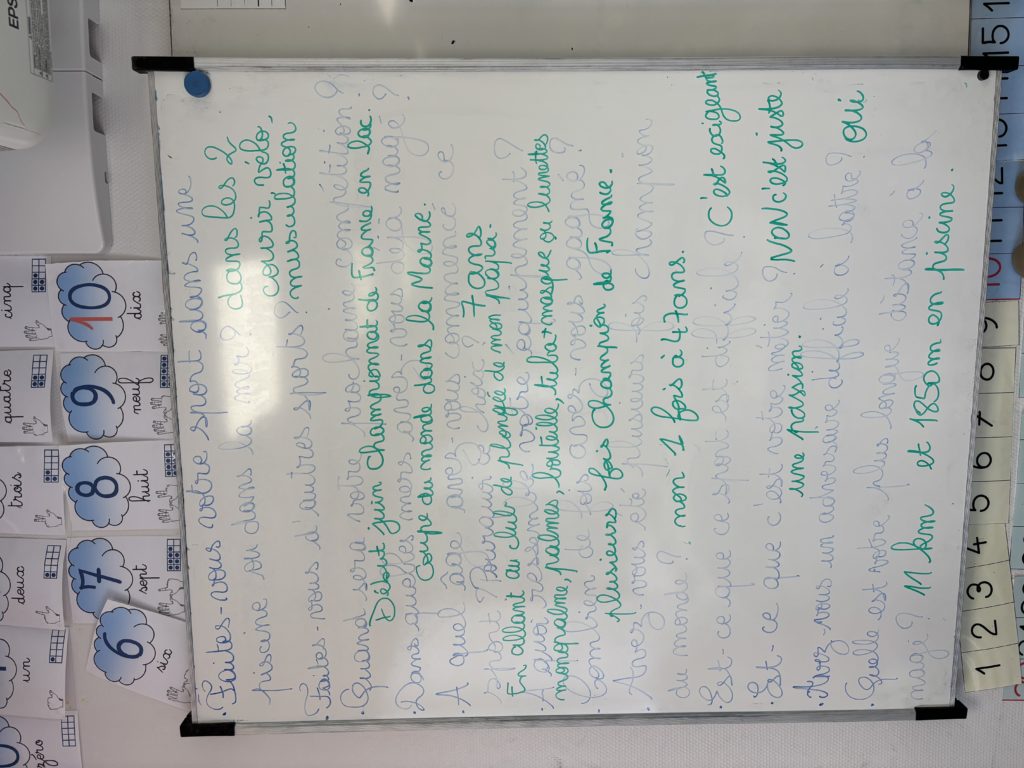 • Faites-vous votre sport dans une
piscine ou dans la mer? dans les 2
• Faites-vous d'autres sports? courir, vélo,
musculation
• Quand sera votre prochaine compétition?
Début juin championnat de France en lac.
• Dans quelles mers avez-vous déjà nagé?
Coupe du monde dans la Marne.
• A quel âge avez-vous commencé ce
sport? Pourquoi ce choix? 7 ans
En allant au club de plongée de mon papa.
• A quoi ressemble votre équipement?
monopalme, palmes, bouteille, tuba + masque ou lunettes
• Combien de fois avez-vous gagné?
plusieurs fois Champion de France.
• Avez-vous été plusieurs fois champion
du monde? non 1 fois à 47 ans.
• Est-ce que ce sport est difficile? C'est exigeant
• Est-ce que c'est votre métier? NON c'est juste
une passion.
• Avez-vous un adversaire difficile à battre? OUI
• Quelle est votre plus longue distance à la
nage? 11 km et 1850m en piscine.
EPS
zéro
un
deux
trois
quatre
cinq
6
six
7
sept
8
huit
9
neuf
10
dix
1 2 3 4 5 6 7 8 9 10 11 12
15